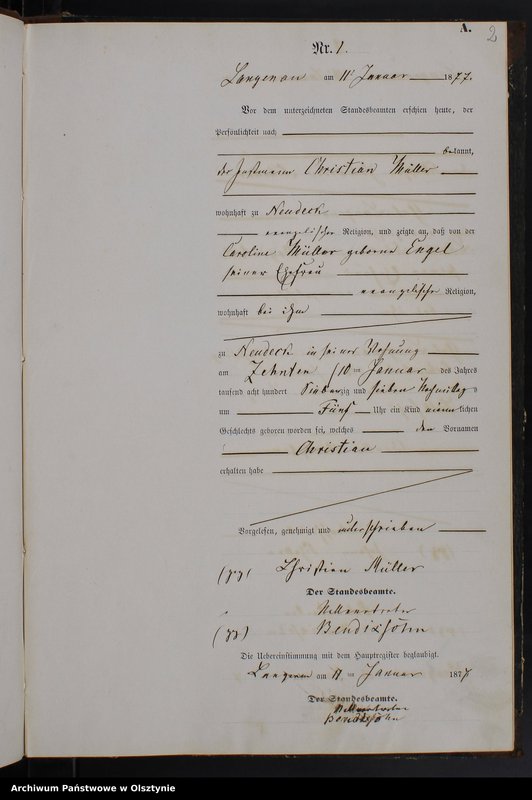 A.
2
Nr. 1.
Langenau am 11t Januar 1877.
Vor dem unterzeichneten Standesbeamten erschien heute, der
Persönlichkeit nach
bekannt,
der Instmann Christian Müller
wohnhaft zu Neudeck
evangelischer Religion, und zeigte an, daß von der
Caroline Müller geborne Engel
seiner Ehefrau
evangelischer Religion,
wohnhaft bei ihm
zu Neudeck in seiner Wohnung
am Zehnten /10 ten Januar des Jahres
tausend acht hundert siebenzig und sieben Nachmittags
um Fünf Uhr ein Kind männlichen
Geschlechts geboren worden sei, welches den Vornamen
Christian
erhalten habe
Vorgelesen, genehmigt und unterschrieben
(gz) Christian Müller
Der Standesbeamte.
(gz) Bendixsohn
Die Uebereinstimmung mit dem Hauptregister beglaubigt.
Langenau am 11 ten Januar 1877
Der Standesbeamte.
Bendixsohn
Archiwum Państwowe w Olsztynie